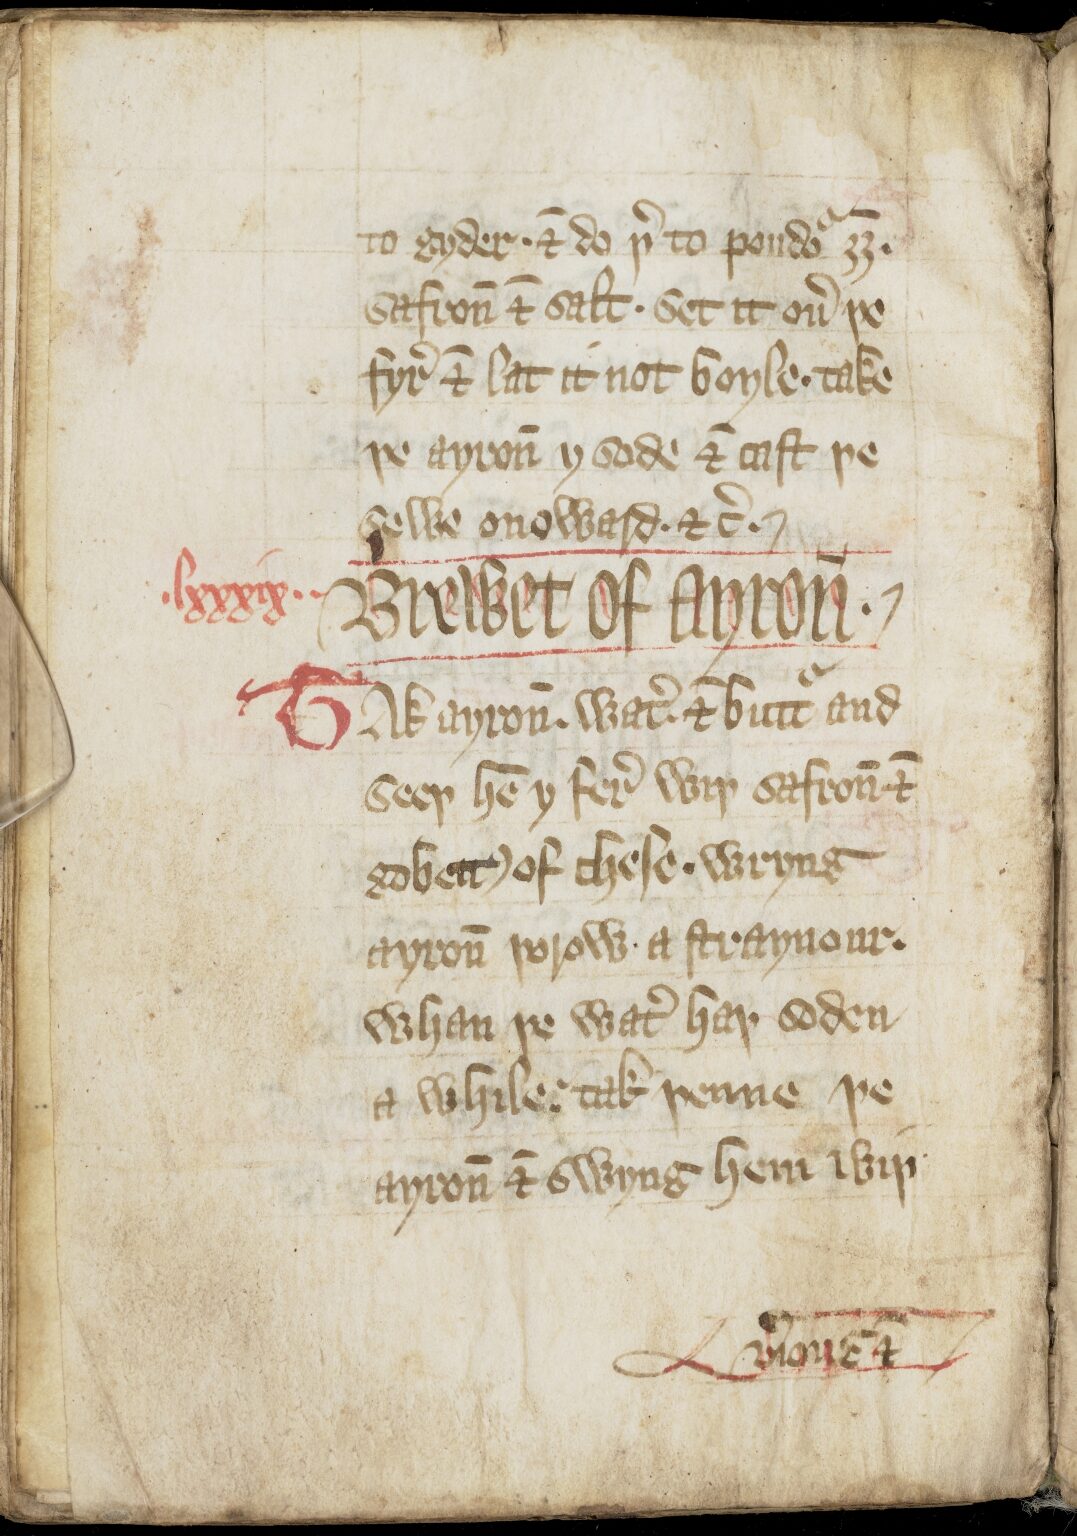 to gyder · ⁊̄ do þͬ to poudoᵃ ȝȝ̄ ·
Safron̄ ⁊̄ salt · set it ou̾ þe
fyr̾ ⁊̄ lat it not boyle · take
þe ayron̄ y sode ⁊̄ cast þe
sewe onoward · ⁊ c̾ ·
·lxxxix·· Brewet of ayron̄ ·
TAk ayron̄ · wat̾ · ⁊̄ buttᵃ and
seeþ hē y fer̾ wiþ safron̄ ⁊̄
gobett) of chese · wryng
ayron̄ þorow · a straynour ·
whan þe wat̾ haþ soden
a while: tak þenne þe
ayron̄ ⁊̄ swyng hem wiþ
v̾ious ⁊̄